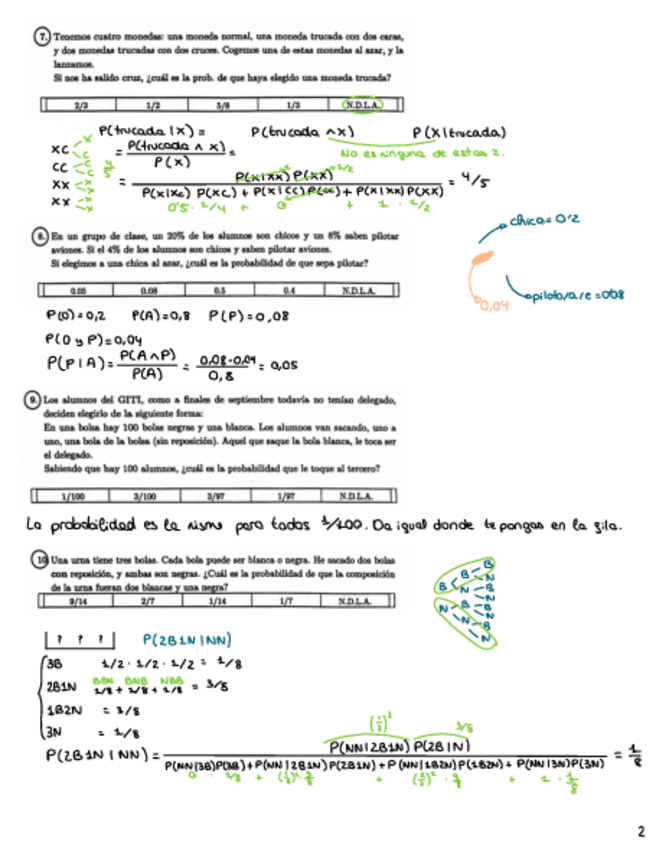 7. Tenemos cuatro monedas: una moneda normal, una moneda trucada con dos caras,
y dos monedas trucadas con dos cruces. Cogemos una de estas monedas al azar, y la
lanzamos.
Si nos ha salido cruz, ¿cuál es la prob. de que haya elegido una moneda trucada?
2/3 1/2 5/8 1/3 N.D.L.A.
P(trucada|X) = P(trucada ∧ X) P(X|trucada)
XC = P(trucada ∧ X) / P(X) = No es ninguna de estas 2.
CC
XX = P(X|XX) P(XX) / P(X|XC) P(XC) + P(X|CC) P(CC) + P(X|XX) P(XX) = 4/5
XX 0'5 · 1/4 + 0 + 1 · 1/2
8. En un grupo de clase, un 20% de los alumnos son chicos y un 8% saben pilotar
aviones. Si el 4% de los alumnos son chicos y saben pilotar aviones.
Si elegimos a una chica al azar, ¿cuál es la probabilidad de que sepa pilotar?
0.05 0.08 0.5 0.4 N.D.L.A.
chica = 0'2
piloto/a/e = 008
0,04
P(O) = 0,2 P(A) = 0,8 P(P) = 0,08
P(O y P) = 0,04
P(P|A) = P(A ∧ P) / P(A) = 0,08 - 0,04 / 0,8 = 0,05
9. Los alumnos del GITI, como a finales de septiembre todavía no tenían delegado,
deciden elegirlo de la siguiente forma:
En una bolsa hay 100 bolas negras y una blanca. Los alumnos van sacando, uno a
uno, una bola de la bolsa (sin reposición). Aquel que saque la bola blanca, le toca ser
el delegado.
Sabiendo que hay 100 alumnos, ¿cuál es la probabilidad que le toque al tercero?
1/100 3/100 3/97 1/97 N.D.L.A.
La probabilidad es la misma para todos 1/100. Da igual donde te pongas en la fila.
10. Una urna tiene tres bolas. Cada bola puede ser blanca o negra. He sacado dos bolas
con reposición, y ambas son negras. ¿Cuál es la probabilidad de que la composición
de la urna fueran dos blancas y una negra?
9/14 2/7 1/14 1/7 N.D.L.A.
? ? ? P(2B1N|NN)
3B 1/2 · 1/2 · 1/2 = 1/8
BBN BNB NBB
2B1N 1/8 + 1/8 + 1/8 = 3/8
1B2N = 3/8
3N = 1/8
P(2B1N|NN) = P(NN|2B1N) P(2B|N) / P(NN|3B)P(3B) + P(NN|2B1N)P(2B1N) + P(NN|1B2N)P(1B2N) + P(NN|3N)P(3N) = 1/8
2